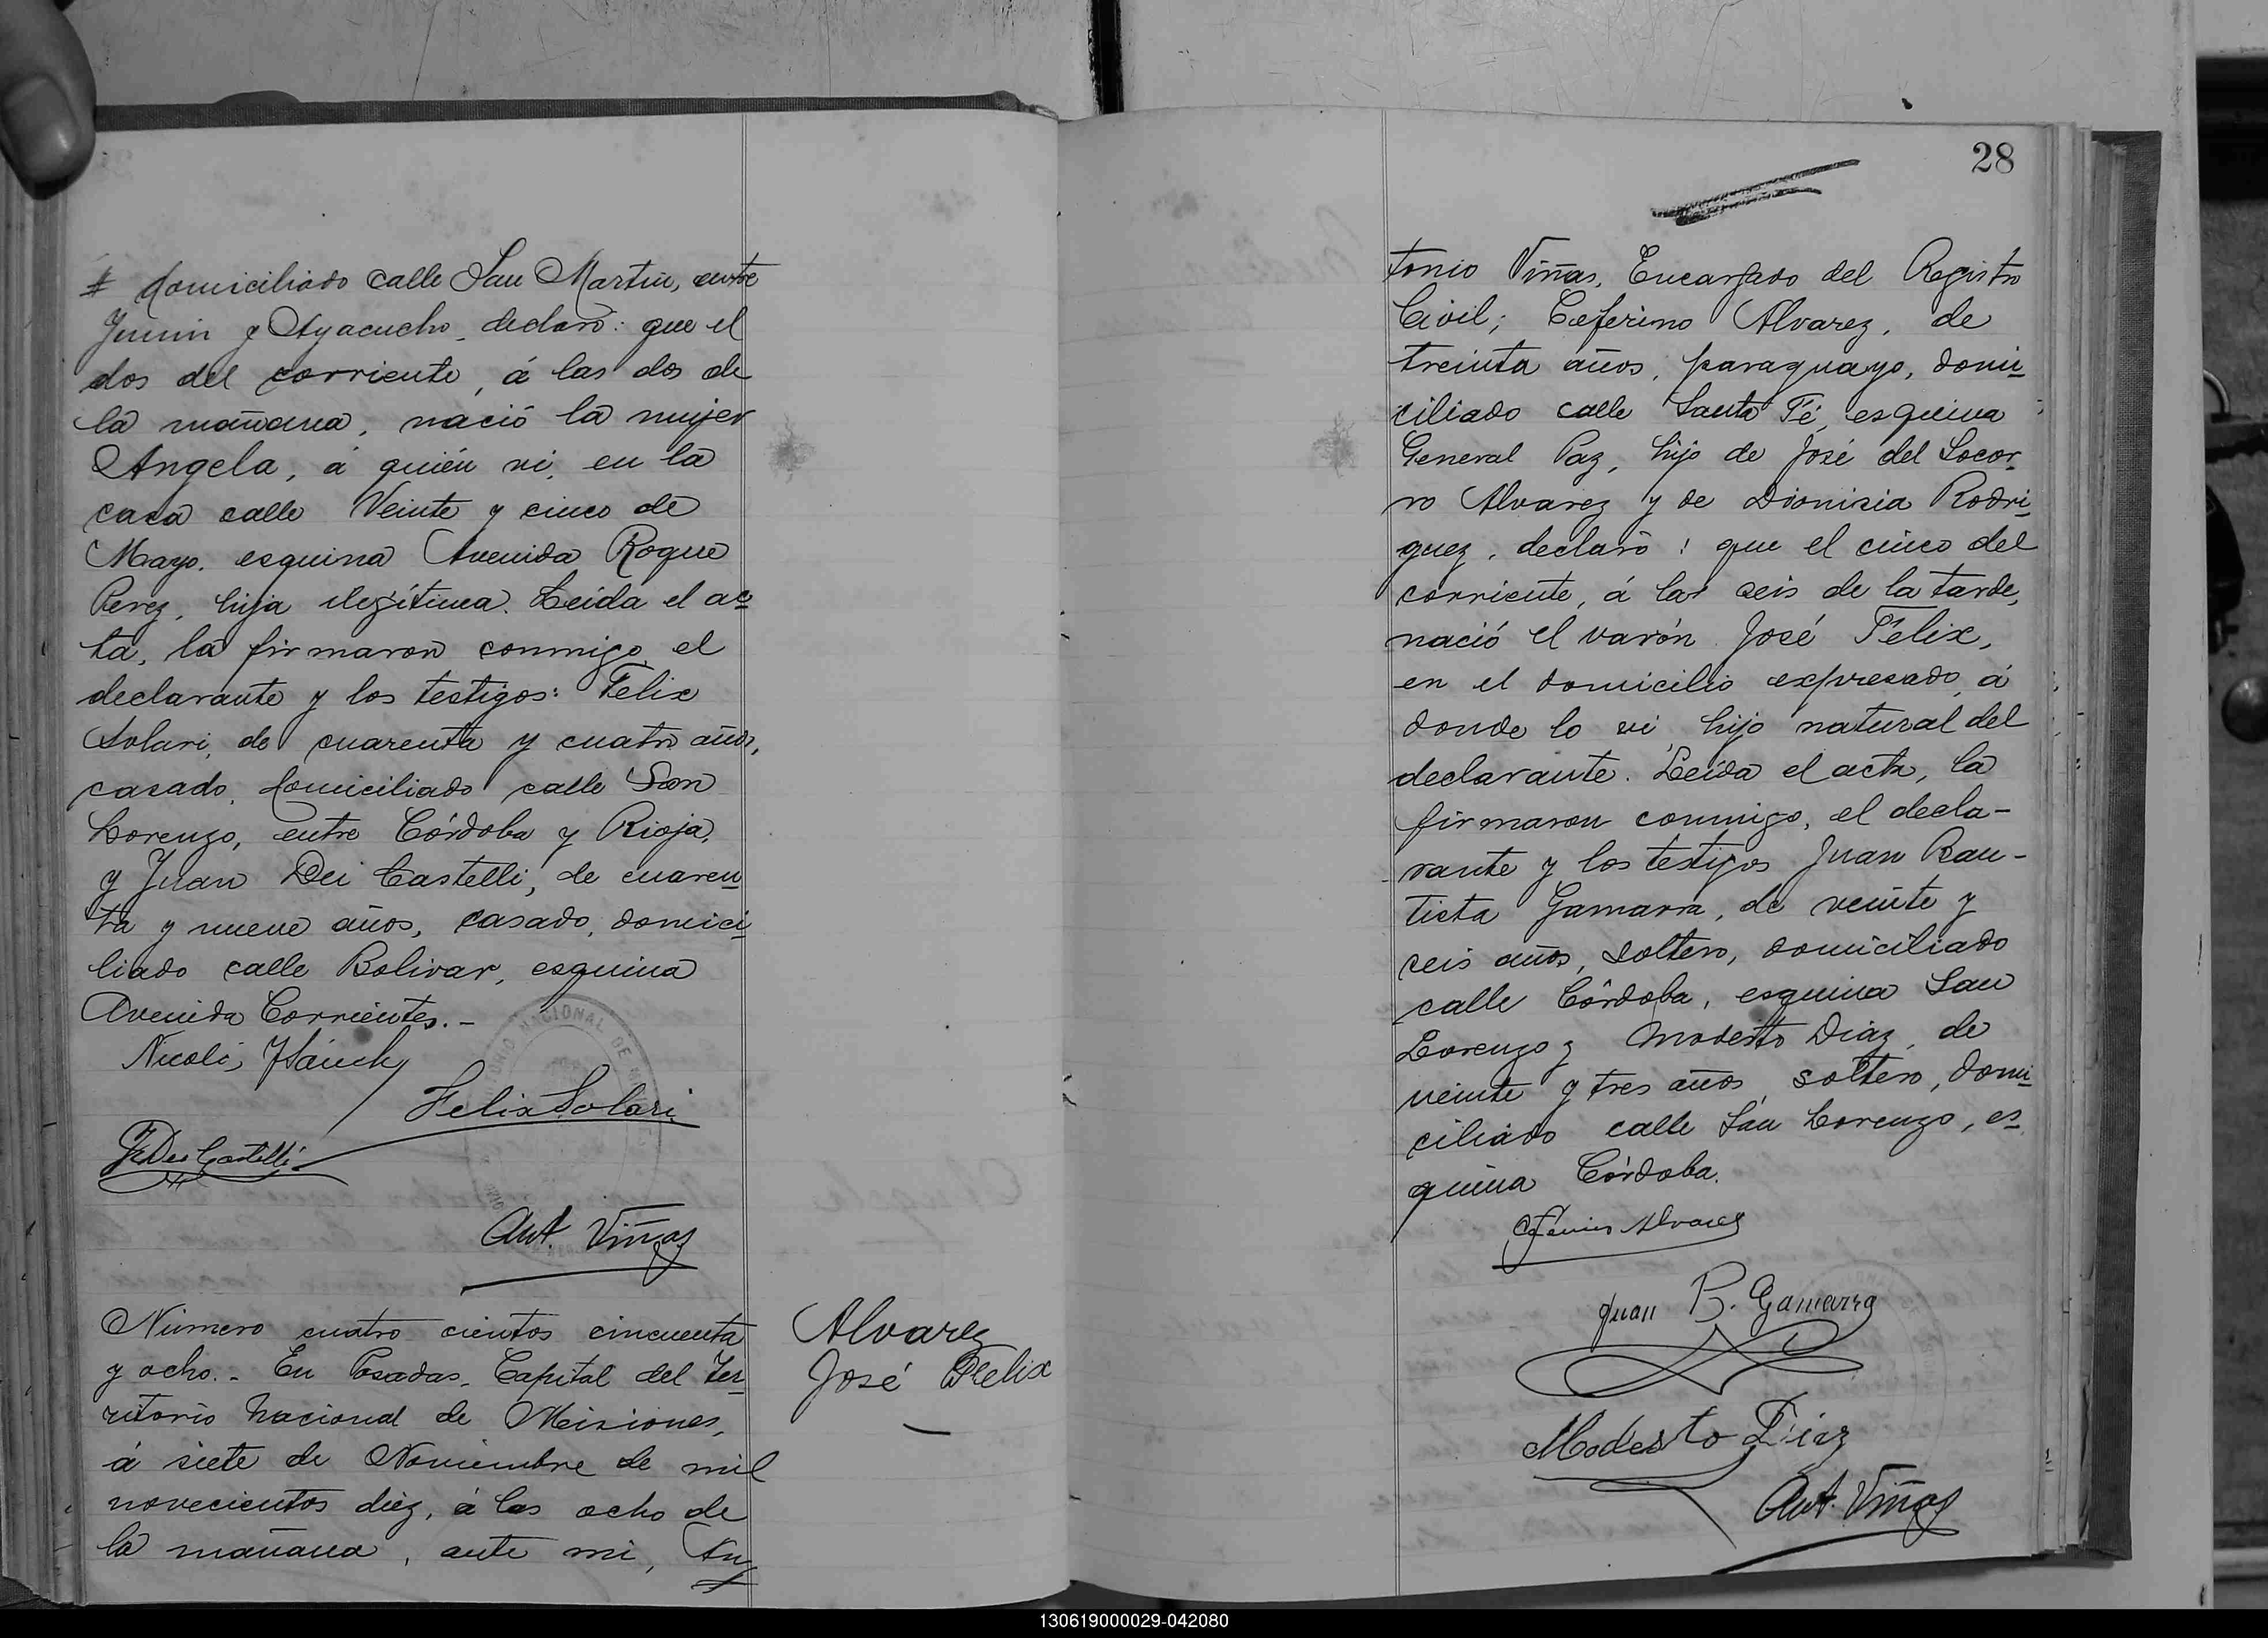 domiciliado calle San Martin, entre
Junin y Ayacucho, declaró: que el
dos del corriente, á las dos de
la mañana, nació la mujer
Angela, á quién vi, en la
casa calle Veinte y cinco de
Mayo. esquina Avenida Roque
Perez, hija ilegítima. Leida el ac
ta, la firmaron conmigo, el
declarante y los testigos: Felix
Solari, de cuarenta y cuatro años,
casado, domiciliado calle San
Lorenzo, entre Córdoba y Rioja,
y Juan Dei Castelli, de cuaren
ta y nueve años, casado, domici
liado calle Bolivar, esquina
Avenida Corrientes.-
Felix Solari
J Dei Castelli
Ant. Viñas
Número cuatro cientos cincuenta
y ocho.- En Posadas, Capital del Ter
ritorio Nacional de Misiones,
á siete de Noviembre de mil
novecientos diez, á las ocho de
la mañana, ante mi, An
Alvarez
José Felix
28
tonio Viñas, Encargado del Registro
Civil; Ceferino Alvarez, de
treinta años, paraguayo, domi
ciliado calle Santa Fé, esquina
General Paz, hijo de José del Socor
ro Alvarez y de Dionisia Rodri
guez, declaró: que el cinco del
corriente, á las seis de la tarde,
nació el varón José Felix,
en el domicilio expresado, á
donde lo vi, hijo natural del
declarante. Leída el acta, la
firmaron conmigo, el decla-
rante y los testigos Juan Bau-
tista Gamarra, de veinte y
seis años, soltero, domiciliado
calle Córdoba, esquina San
Lorenzo y Modesto Diaz, de
veinte y tres años, soltero, domi
ciliado calle San Lorenzo, es
quina Córdoba.
Ceferino Alvarez
Juan B. Gamarra
Modesto Diaz
Ant. Viñas
130619000029-042080